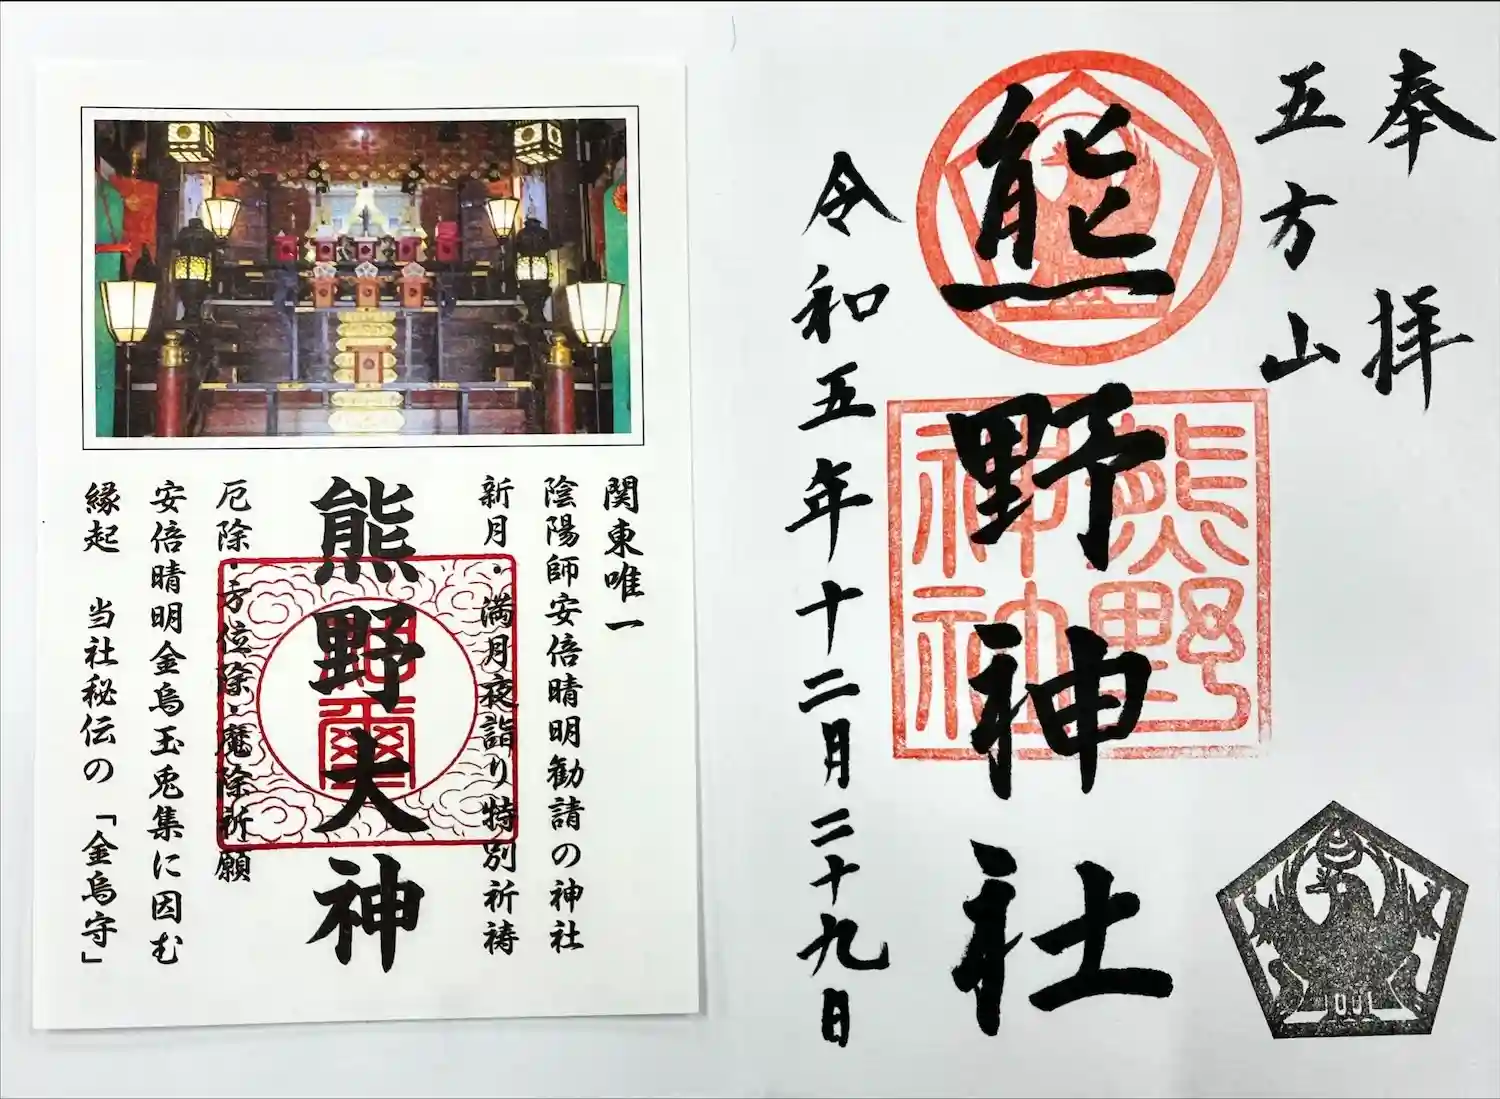 奉拝
五方山
熊野神社
令和五年十二月二十九日
熊野
神社
関東唯一
陰陽師安倍晴明勧請の神社
新月・満月夜詣り特別祈祷
熊野大神
厄除・方位除・魔除祈願
安倍晴明金烏玉兎集に因む
縁起 当社秘伝の「金烏守」